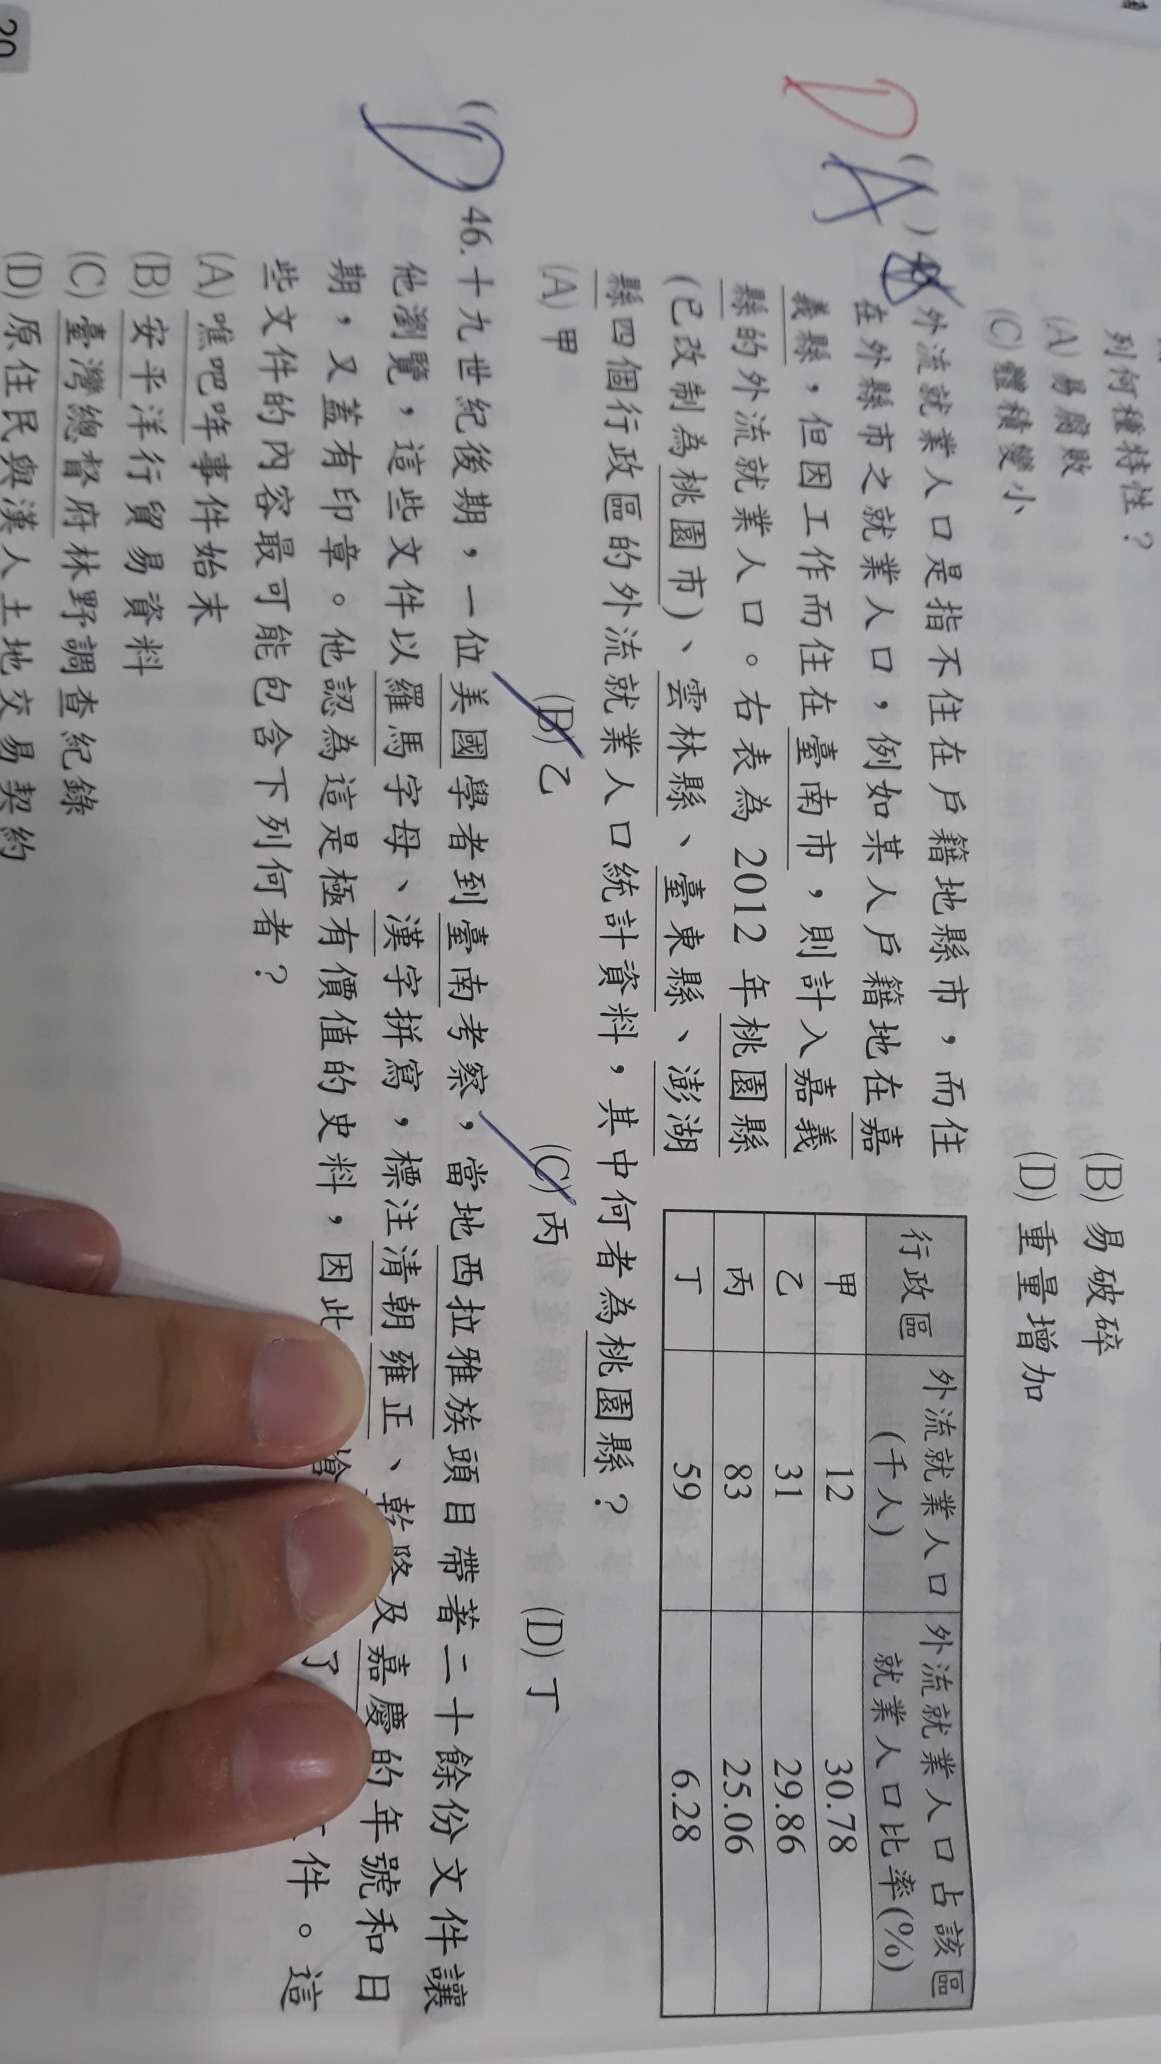 20
列何種特性？
(A) 易腐敗
(B) 易破碎
(C) 體積變小
(D) 重量增加
D
A
( )
外流就業人口是指不住在戶籍地縣市，而住
在外縣市之就業人口，例如某人戶籍地在嘉
義縣，但因工作而住在臺南市，則計入嘉義
縣的外流就業人口。右表為 2012 年桃園縣
(已改制為桃園市)、雲林縣、臺東縣、澎湖
縣四個行政區的外流就業人口統計資料，其中何者為桃園縣？
行政區 外流就業人口(千人) 外流就業人口占該區就業人口比率(%)
甲 12 30.78
乙 31 29.86
丙 83 25.06
丁 59 6.28
(A) 甲
(B) 乙
(C) 丙
(D) 丁
(D) 46. 十九世紀後期，一位美國學者到臺南考察，當地西拉雅族頭目帶著二十餘份文件讓
他瀏覽，這些文件以羅馬字母、漢字拼寫，標注清朝雍正、乾隆及嘉慶的年號和日
期，又蓋有印章。他認為這是極有價值的史料，因此 了 件。這
些文件的內容最可能包含下列何者？
(A) 噍吧哖事件始末
(B) 安平洋行貿易資料
(C) 臺灣總督府林野調查紀錄
(D) 原住民與漢人土地交易契約